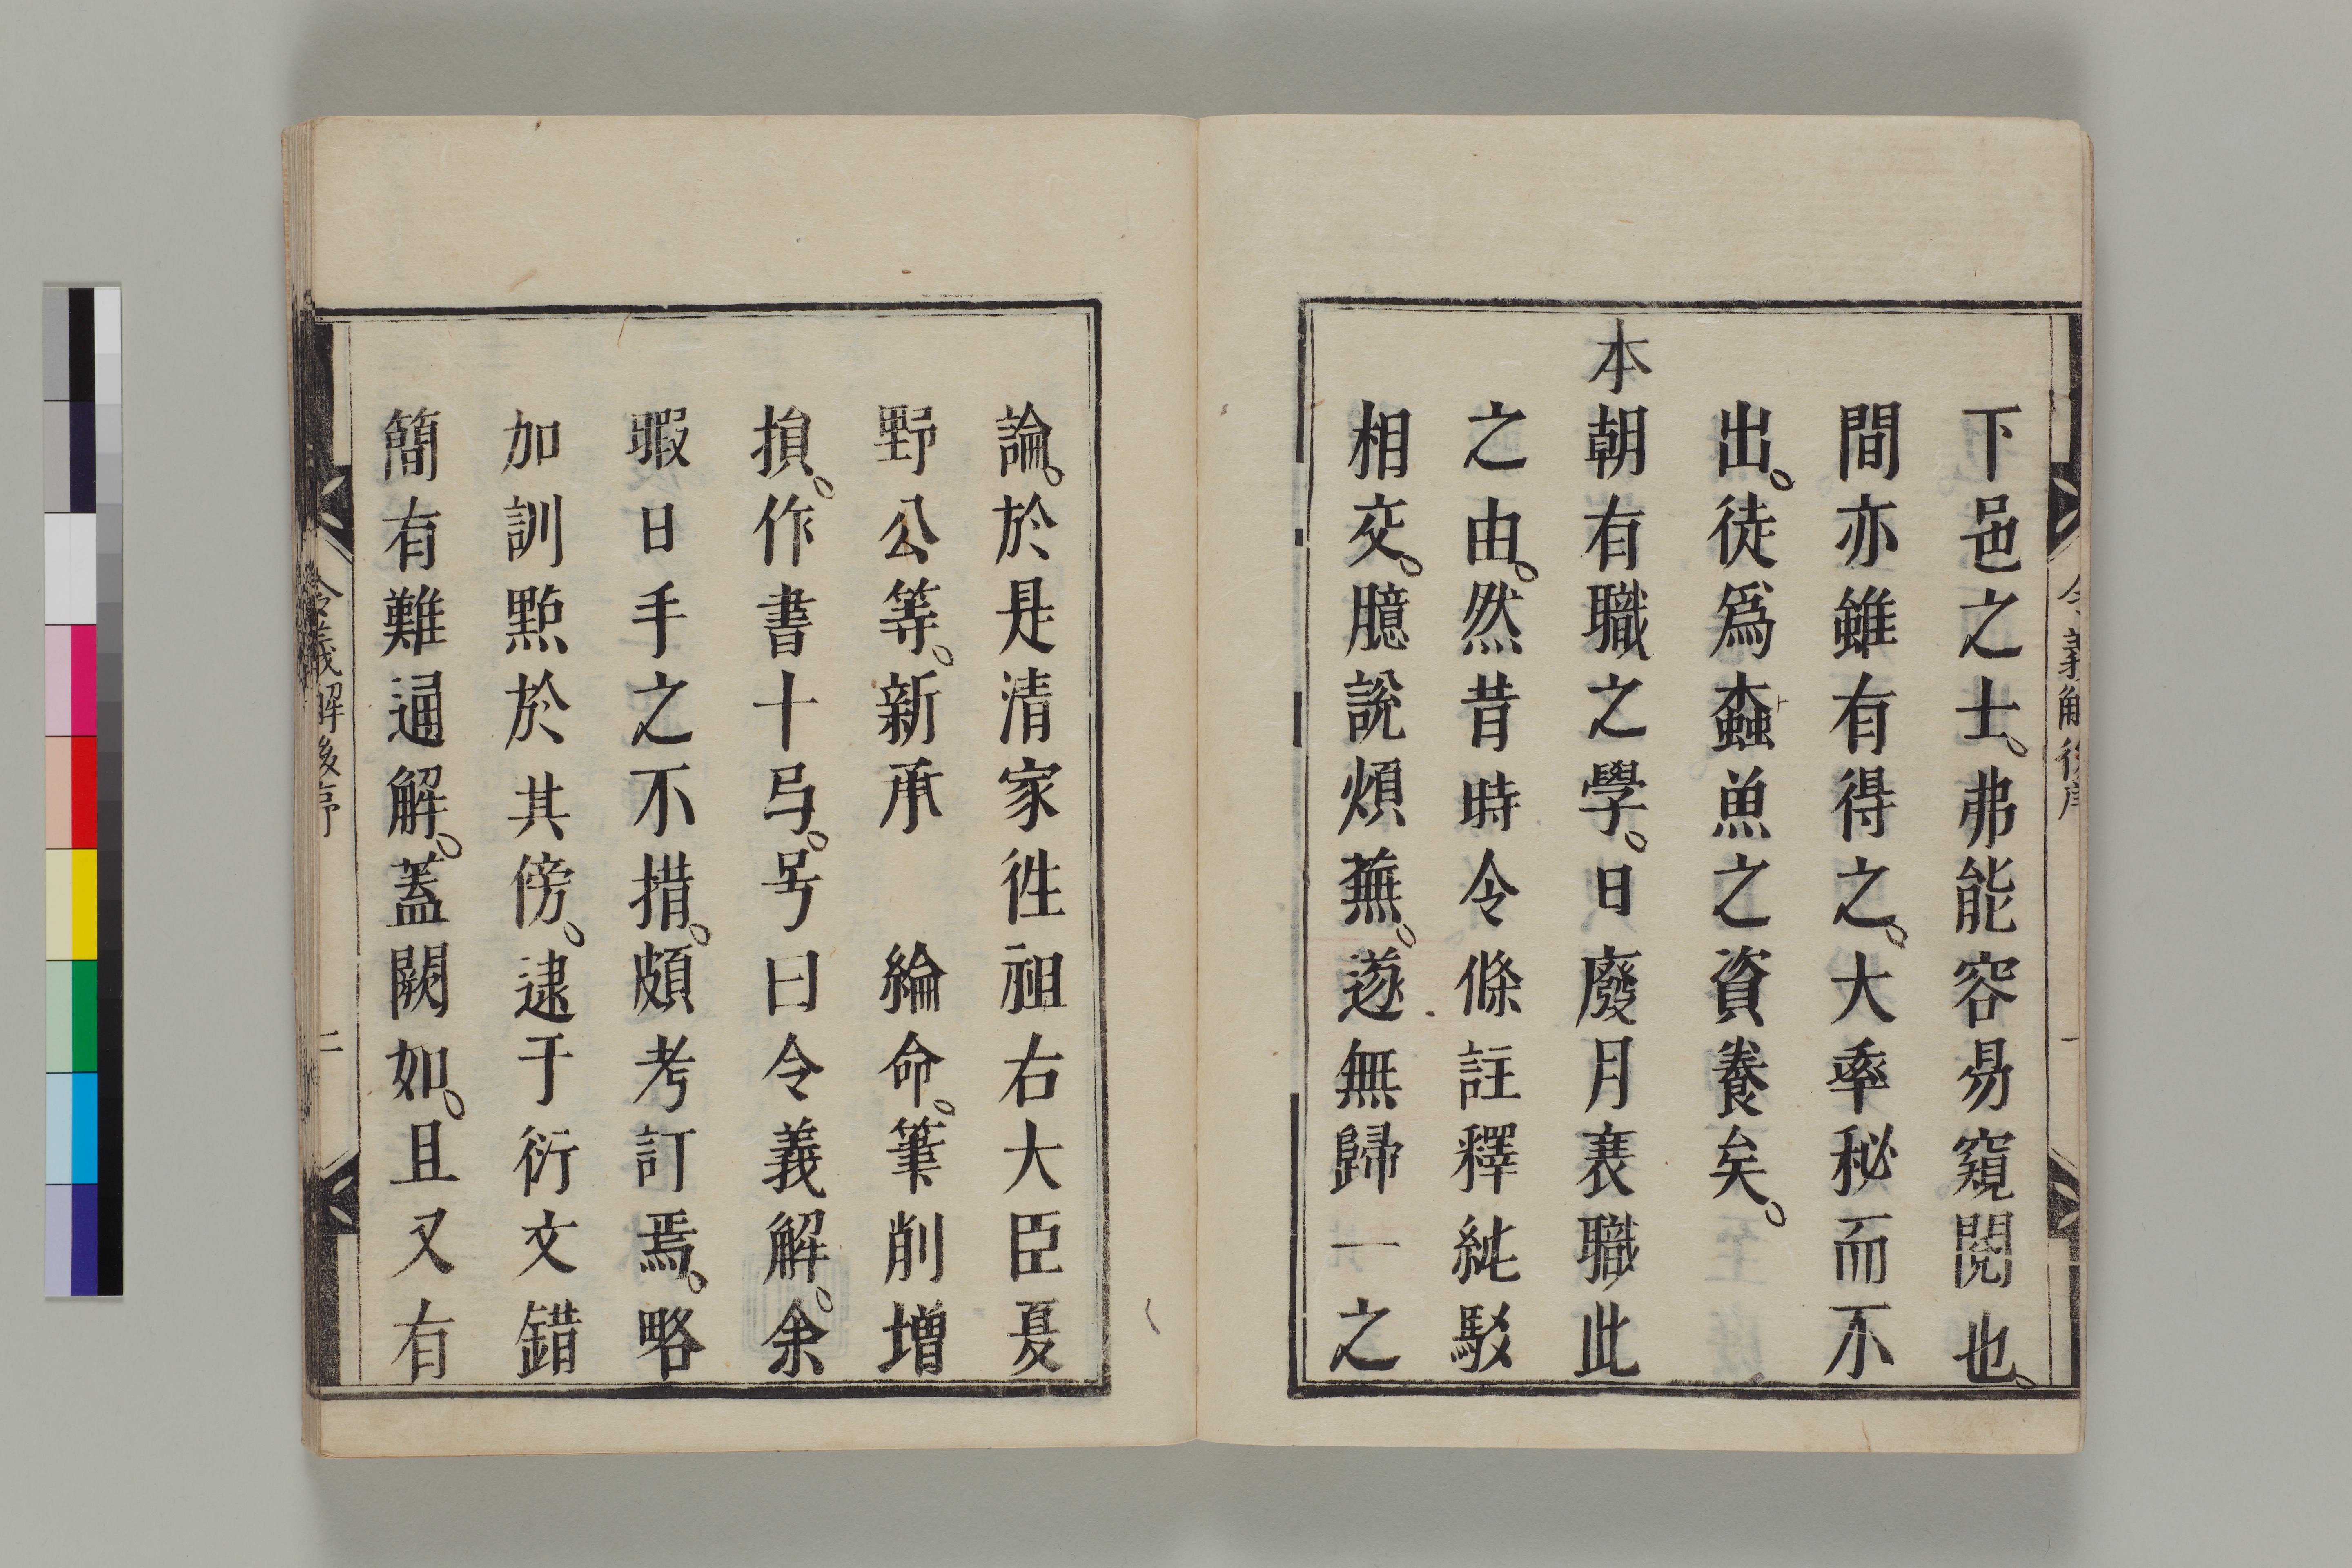 下邑之士。弗能容易窺閱也。
間亦雖有得之。大率秘而不
出。徒爲蠹魚之資養矣。
本朝有職之學。日廢月衰職此
之由。然昔時令條註釋紕駁
相交。臆說煩蕪。遂無歸一之
令義解後序
一
論。於是清家徃祖右大臣夏
野公等。新承　綸命。筆削增
損。作書十弓。号曰令義解。余
暇日手之不措。頗考訂焉。略
加訓點於其傍。逮于衍文錯
簡有難通解。蓋闕如。且又有
令義解後序
二